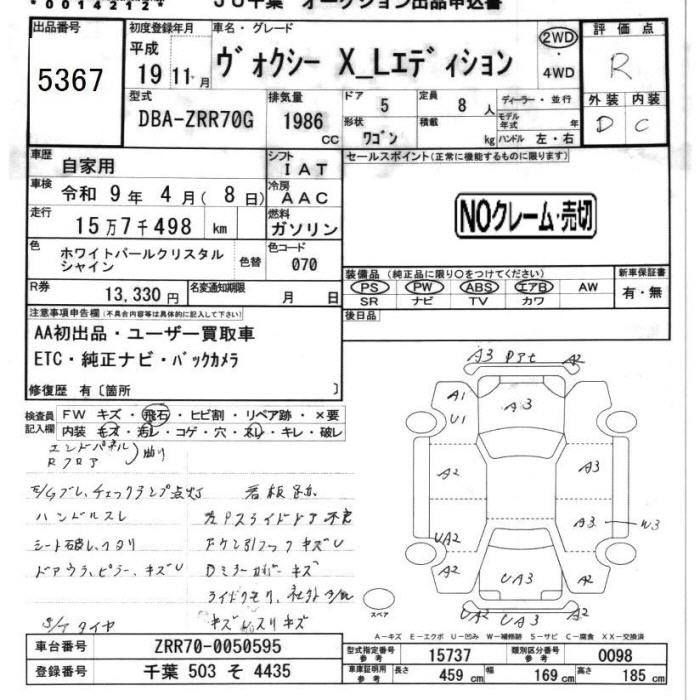 00142124
JU千葉 オークション出品申込書
出品番号
5367
初度登録年月
平成
19 11月
車名・グレード
ヴォクシー X_Lエディション
2WD
・
4WD
評価点
R
外装 内装
D C
型式
DBA-ZRR70G
排気量
1986
cc
ドア
5
定員
8 人
ディーラー・並行
モデル年式 年
形状
ワゴン
積載
kg
ハンドル 左・右
車歴
自家用
シフト
IAT
セールスポイント(正常に機能するものに限ります)
車検
令和 9年 4月( 8日)
冷房
AAC
NOクレーム・売切
走行
15万7千498 km
燃料
ガソリン
色
ホワイトパールクリスタル
シャイン
色替
色コード
070
装備品(純正品に限り○をつけてください)
PS PW ABS エアB AW
SR ナビ TV カワ
新車保証書
有・無
R券
13,330円
名変通知期限
月 日
後日品
注意事項申告欄(不具合内容等は具体的に記入して下さい)
AA初出品・ユーザー買取車
ETC・純正ナビ・バックカメラ
修復歴 有〔箇所 〕
検査員
記入欄
FW キズ・飛石・ヒビ割・リペア跡・×要
内装 キズ・汚レ・コゲ・穴・スレ・キレ・破レ
エンドパネル
Rフロア
曲り
E/Gブレ、チェックランプ点灯 看板跡
ハンドルスレ
左Pスライドドア不良
シート破レ、ヘタリ
下ケン引フックキズU
ドアウラ、ピラー、キズU
Dミラーカバーキズ
キズ
S/Tタイヤ
A3 A2
A3
A1
U1
A2
A3
UA2
A3
W3
A2
UA3
A2
UA2 UA3 A2
スペア
A-キズ E-エクボ U-凹み W-補修跡 S-サビ C-腐食 XX-交換済
車台番号
ZRR70-0050595
型式指定番号
参考
15737
類別区分番号
参考
0098
登録番号
千葉 503 そ 4435
車庫証明用
参考
長さ
459 cm
幅
169 cm
高さ
185 cm